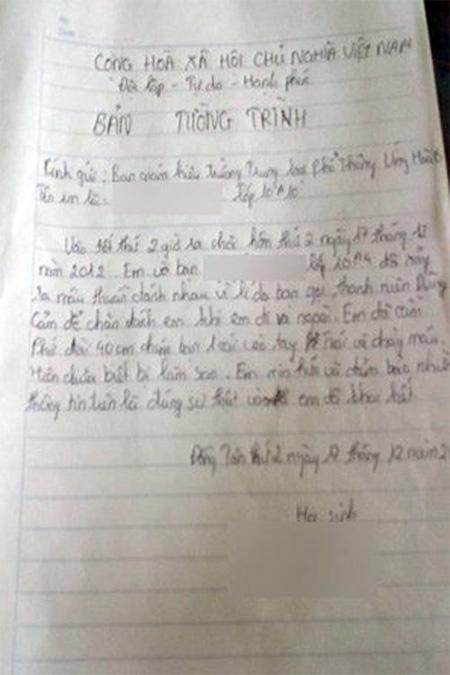 CỘNG HOÀ XÃ HỘI CHỦ NGHĨA VIỆT NAM
Độc lập - Tự do - Hạnh phúc
BẢN TƯỜNG TRÌNH
Kính gửi: Ban giám hiệu Trường Trung học Phổ Thông Ứng Hoà B
Tên em là: lớp 10A10
Vào tiết thứ 2 giờ ra chơi hôm thứ 2 ngày 17 tháng 12
năm 2012. Em và bạn lớp 10A4 đã xảy
ra mâu thuẫn đánh nhau vì lí do bạn gọi thanh niên
để chặn đánh em khi em đi ra ngoài. Em đã cầm
dài 40cm chém bạn tay rồi và chảy máu.
Hiện chưa biết bị làm sao. Em xin hứa và đảm bảo những
thông tin trên là đúng sự thật em đã khai hết
Đồng Tân thứ 2 ngày 17 tháng 12 năm 2
Học sinh